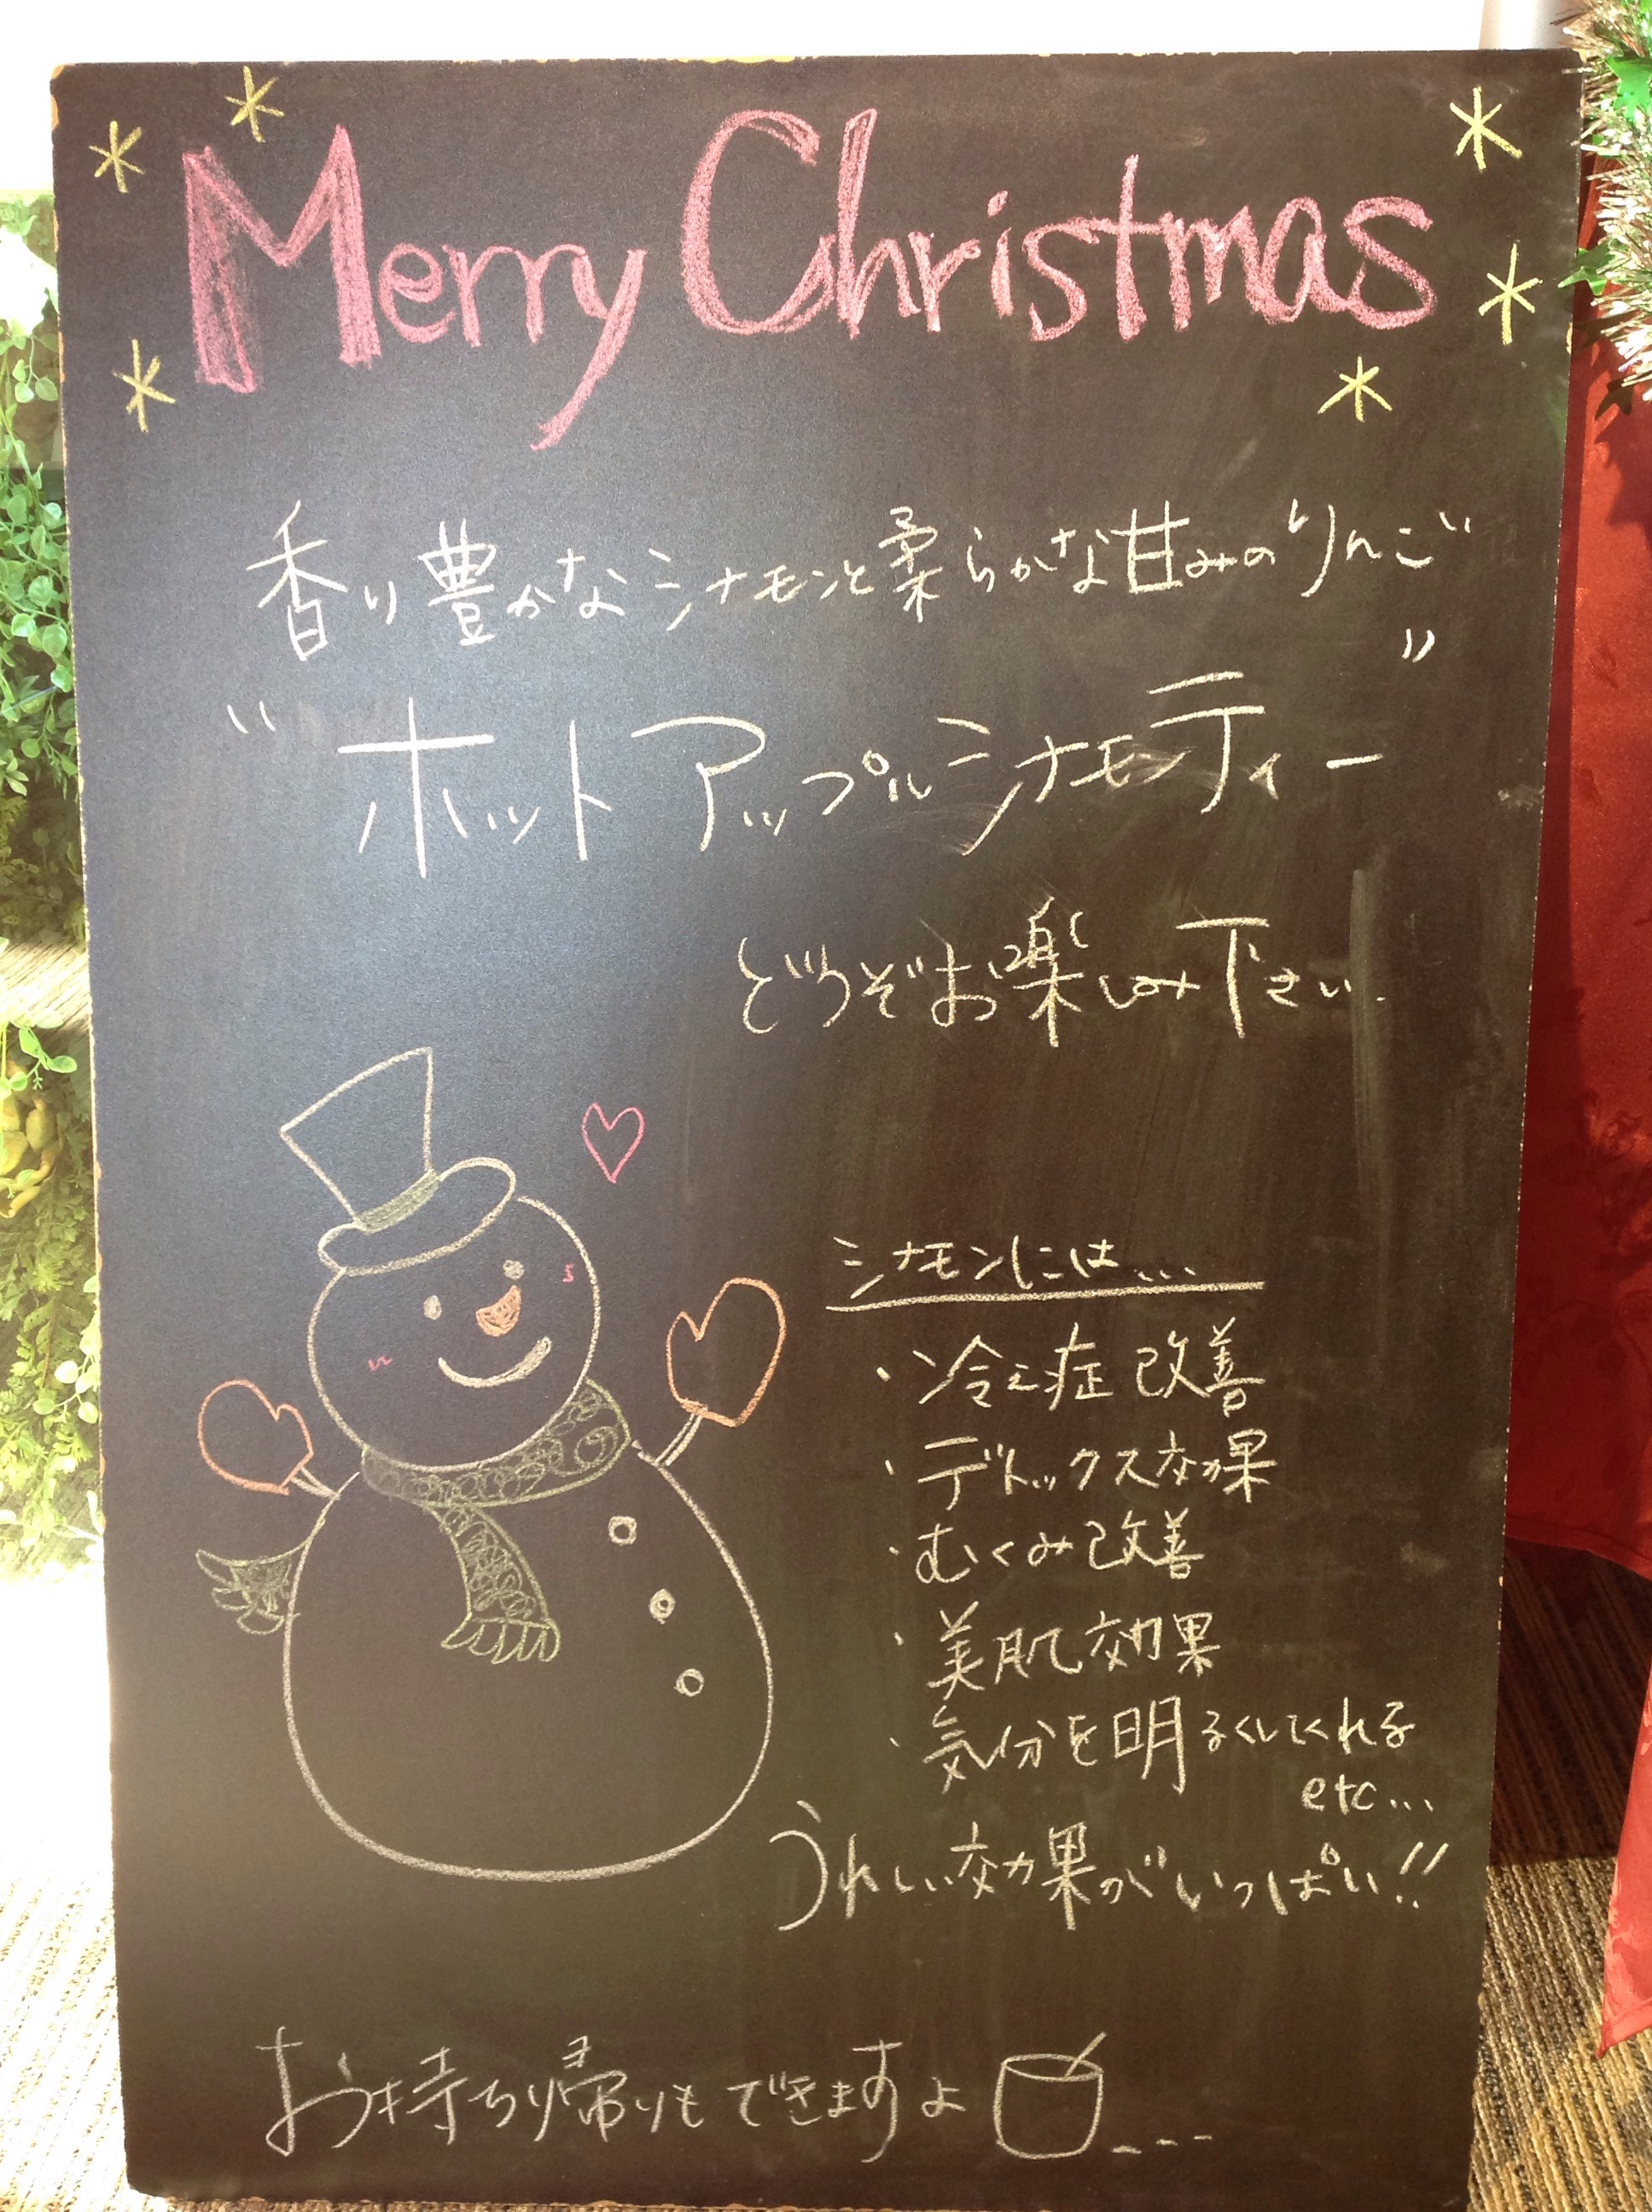 Merry Christmas
香り豊かなシナモンと柔らかな甘みのりんご
"ホットアップルシナモンティー"
どうぞお楽しみ下さい.
シナモンには...
・冷え症改善
・デトックス効果
・むくみ改善
・美肌効果
・気分を明るくしてくれる
etc...
うれしい効果がいっぱい!!
お持ち帰りもできますよ